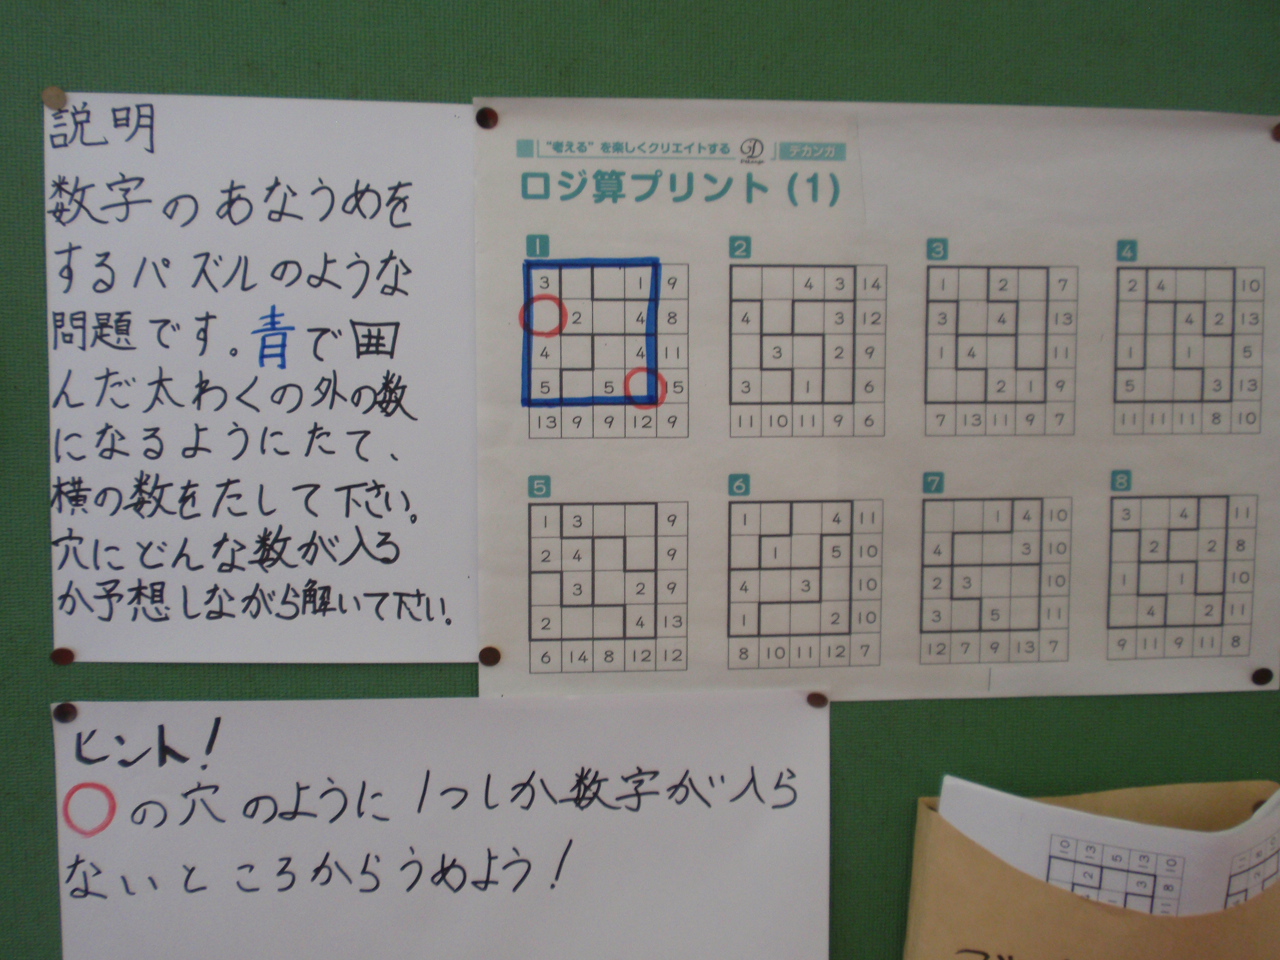 説明
数字のあなうめを
するパズルのような
問題です。青で囲
んだ太わくの外の数
になるようにたて、
横の数をたして下さい。
穴にどんな数が入る
か予想しながら解いて下さい。
"考える"を楽しくクリエイトする
デカンガ
ロジ算プリント(1)
1
3 1 9
2 4 8
4 4 11
5 5 15
13 9 9 12 9
2
4 3 14
4 3 12
3 2 9
3 1 6
11 10 11 9 6
3
1 2 7
3 4 13
1 4 11
2 1 9
7 13 11 9 7
4
2 4 10
4 2 13
1 1 5
5 3 13
11 11 11 8 10
5
1 3 9
2 4 9
3 2 9
2 4 13
6 14 8 12 12
6
1 4 11
1 5 10
4 3 10
1 2 10
8 10 11 12 7
7
1 4 10
4 3 10
2 3 10
3 5 11
12 7 9 13 7
8
3 4 11
2 2 8
1 1 10
4 2 11
9 11 9 11 8
ヒント!
○の穴のように1つしか数字が入ら
ないところからうめよう!
10 13 5 13 10
2 3 8